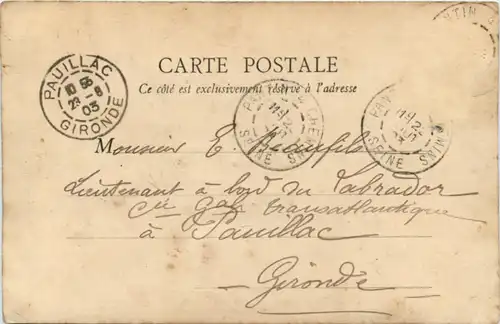 CARTE POSTALE
Ce côté est exclusivement réservé à l'adresse
PAUILLAC
GIRONDE
03
SEINE
SEINE
Monsieur E. Beaufils
Lieutenant à bord du Labrador
Cie Gale Transatlantique
à Pauillac
Gironde